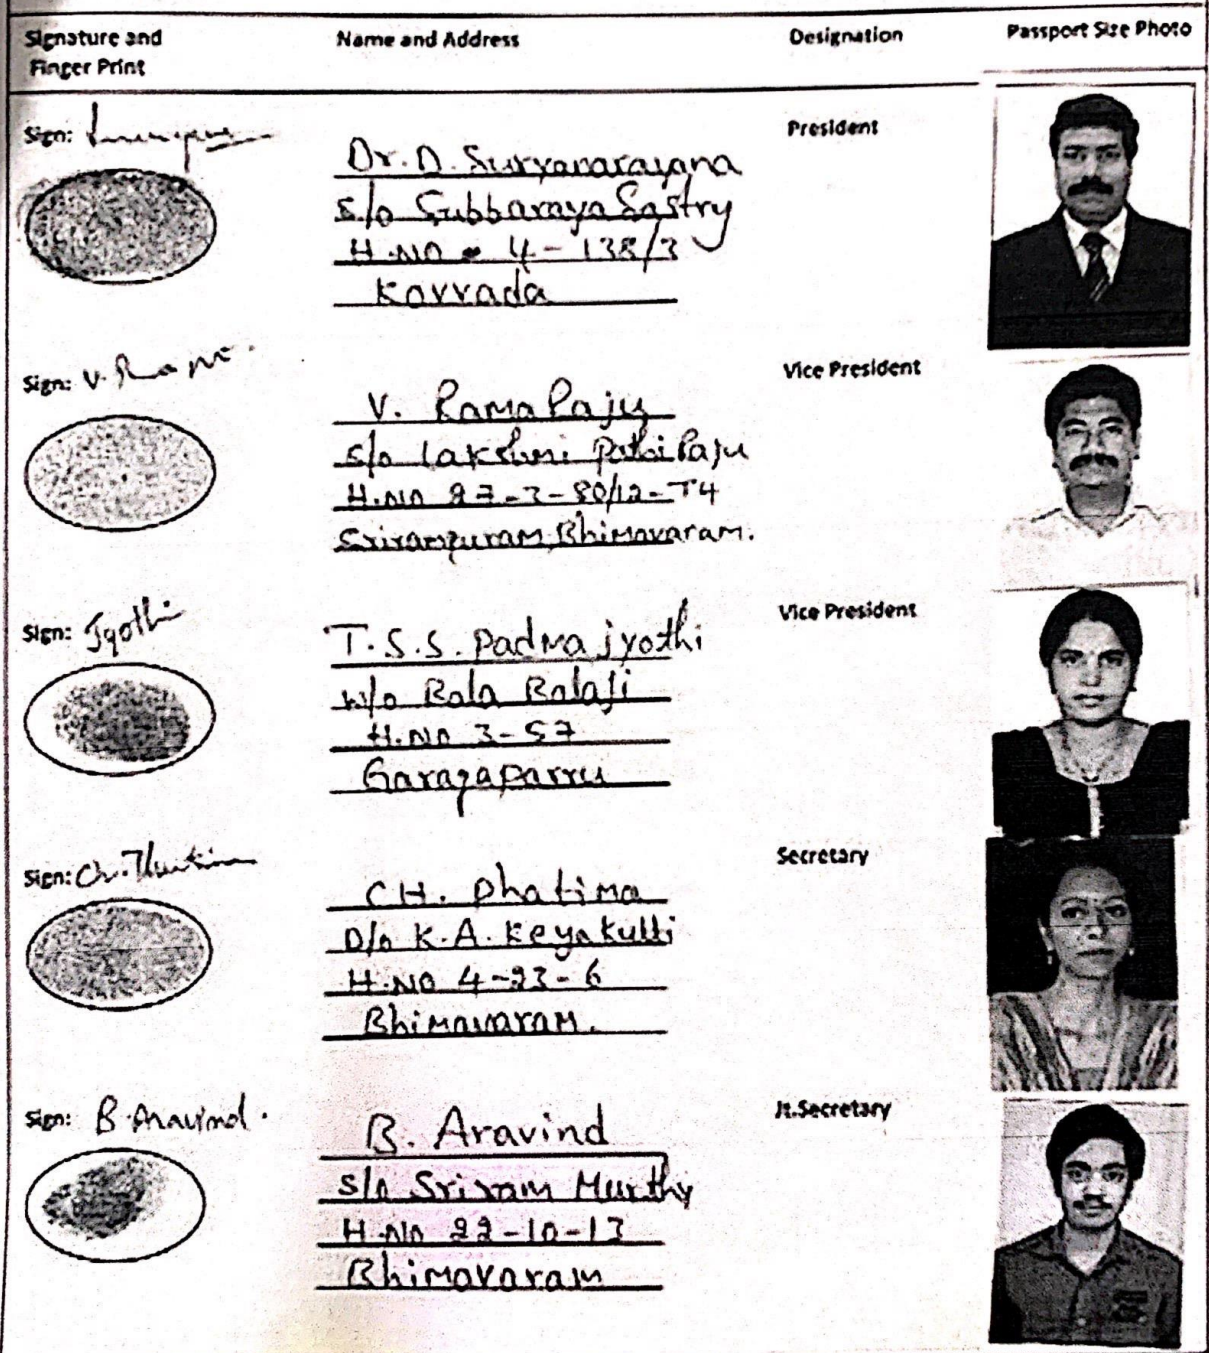 Signature and Finger Print
Name and Address
Designation
Passport Size Photo
Sign:
Dr. D. Suryanarayana
S/o Subbaraya Sastry
H.NO - 4-138/3
Kovvada
President
Sign: V. Rama
V. Rama Raju
S/o Lakshmi Pathi Raju
H.NO 27-3-80/12-T4
Srirampuram, Bhimavaram.
Vice President
Sign: Jyothi
T.S.S. Padma jyothi
W/o Bala Balaji
H.NO 3-57
Garagaparru
Vice President
Sign: Ch.
CH. Phatima
D/o K.A. Keyakutti
H.NO 4-23-6
Bhimavaram.
Secretary
Sign: B. Aravind.
B. Aravind
S/o Sriram Murthy
H.NO 22-10-13
Bhimavaram
Jt.Secretary